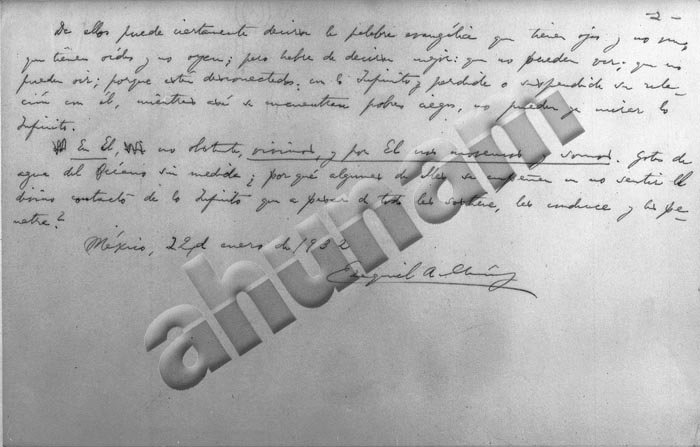 -2-
De ellos puede ciertamente decirse la palabra evangélica que tienen ojos y no ven,
que tienen oídos y no oyen; pero habrá de decirse mejor: que no pueden ver; que no
pueden oir; porque están desconectados, en lo Infinito, y perdida o suspendida su rela-
ción con él, mientras así se encuentran pobres ciegos, no pueden ya mirar lo
Infinito.
En El no obstante, vivimos, y por El nos movemos y somos. Gotas de
agua del Océano sin medida ¿por qué algunas de ellas se empeñan en no sentir el
divino contacto de lo Infinito que a pesar de todo las sostiene, las conduce y las pe-
netra?
México, 22 de enero de 1932
Ezequiel A. Chávez
ahunam